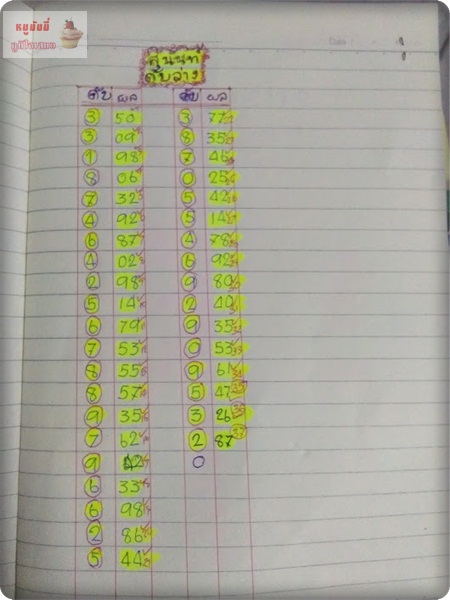 หมูบัยบี่
สุนันท์
ดับล่าง
ดับ ผล ดับ ผล
3 50 3 77
3 09 8 35
1 98 7 46
8 06 0 25
7 32 5 42
4 92 5 14
6 87 4 78
4 02 6 92
2 98 9 80
5 14 2 40
6 79 9 35
7 53 0 53
8 55 9 61
8 57 5 47
9 35 3 26
7 62 2 87
9 42 0
6 33
6 98
2 86
5 44